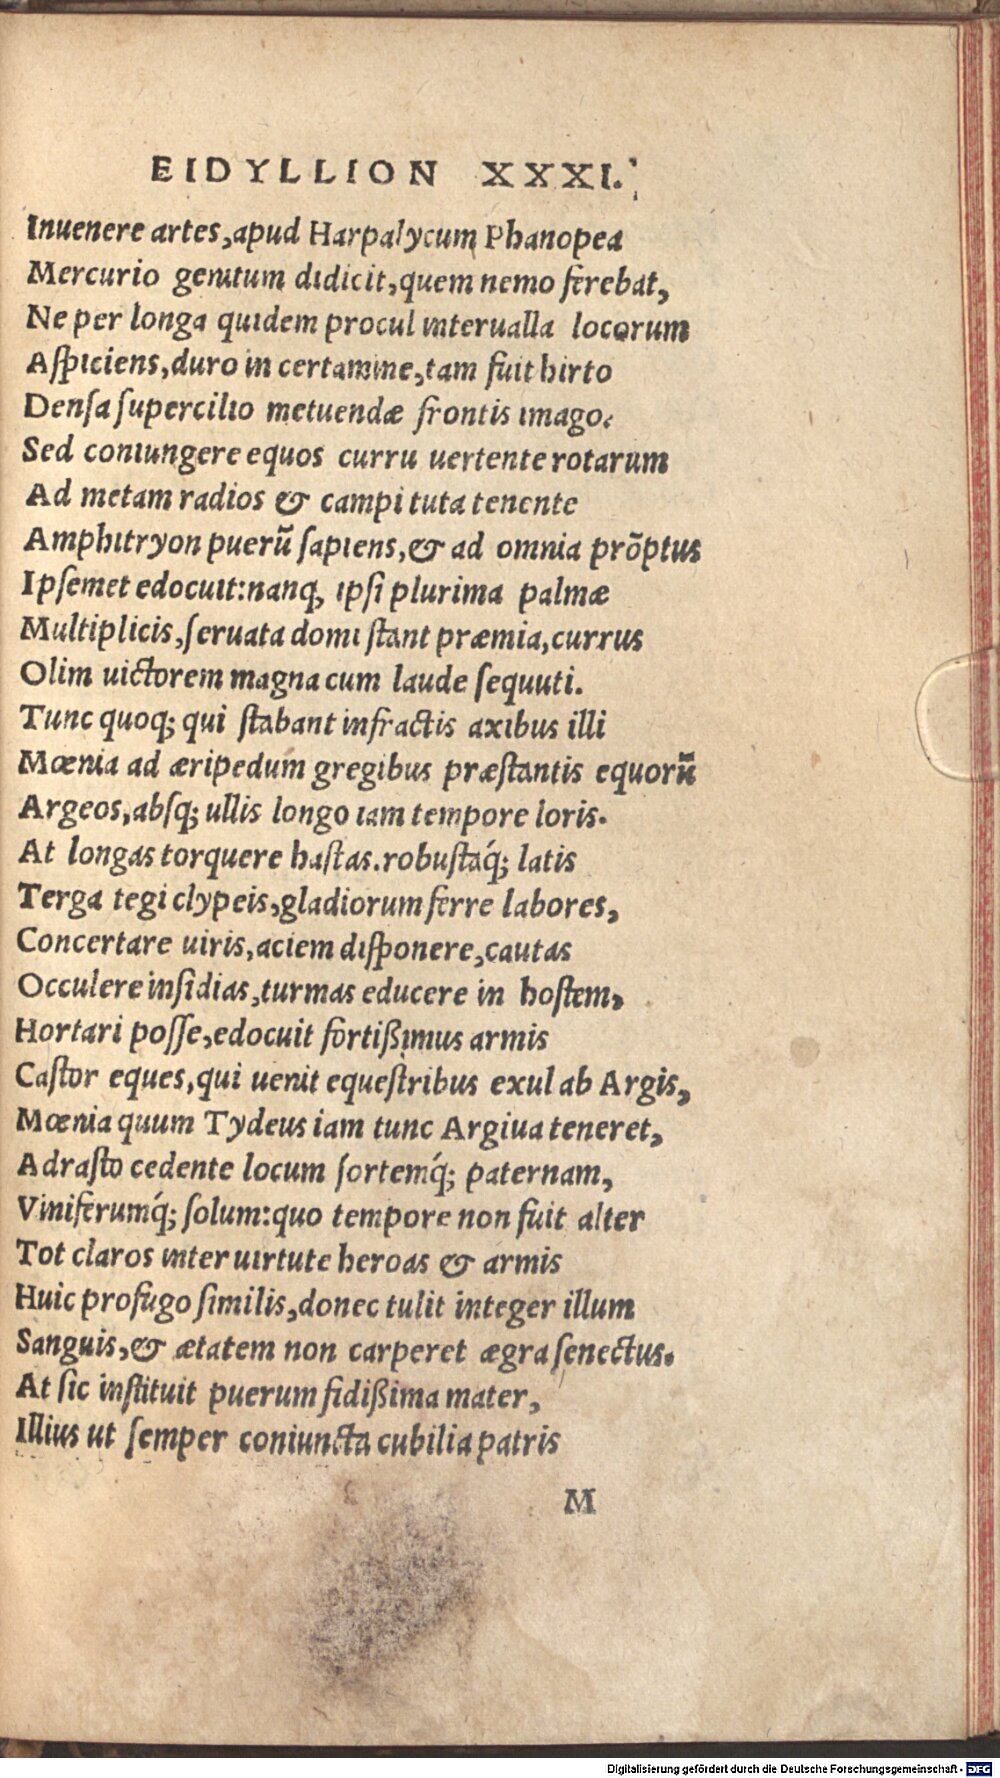 EIDYLLION XXXI.
Inuenere artes, apud Harpalycum Phanopea
Mercurio genitum didicit, quem nemo ferebat,
Ne per longa quidem procul interualla locorum
Aſpiciens, duro in certamine, tam fuit hirto
Denſa ſupercilio metuendæ frontis imago.
Sed coniungere equos curru uertente rotarum
Ad metam radios & campi tuta tenente
Amphitryon puerũ ſapiens, & ad omnia prõptus
Ipſemet edocuit: nanq; ipſi plurima palmæ
Multiplicis, ſeruata domi ſtant præmia, currus
Olim uictorem magna cum laude ſequuti.
Tunc quoq; qui ſtabant infractis axibus illi
Mœnia ad æripedum gregibus præſtantis equorũ
Argeos, abſq; ullis longo iam tempore loris.
At longas torquere haſtas. robuſtaq́; latis
Terga tegi clypeis, gladiorum ferre labores,
Concertare uiris, aciem diſponere, cautas
Occulere inſidias, turmas educere in hoſtem,
Hortari poſſe, edocuit fortißimus armis
Caſtor eques, qui uenit equeſtribus exul ab Argis,
Mœnia quum Tydeus iam tunc Argiua teneret,
Adraſto cedente locum ſortemq́; paternam,
Viniferumq́; ſolum: quo tempore non fuit alter
Tot claros inter uirtute heroas & armis
Huic profugo ſimilis, donec tulit integer illum
Sanguis, & ætatem non carperet ægra ſenectus.
At ſic inſtituit puerum fidißima mater,
Illius ut ſemper coniuncta cubilia patris
M
Digitalisierung gefördert durch die Deutsche Forschungsgemeinschaft - DFG